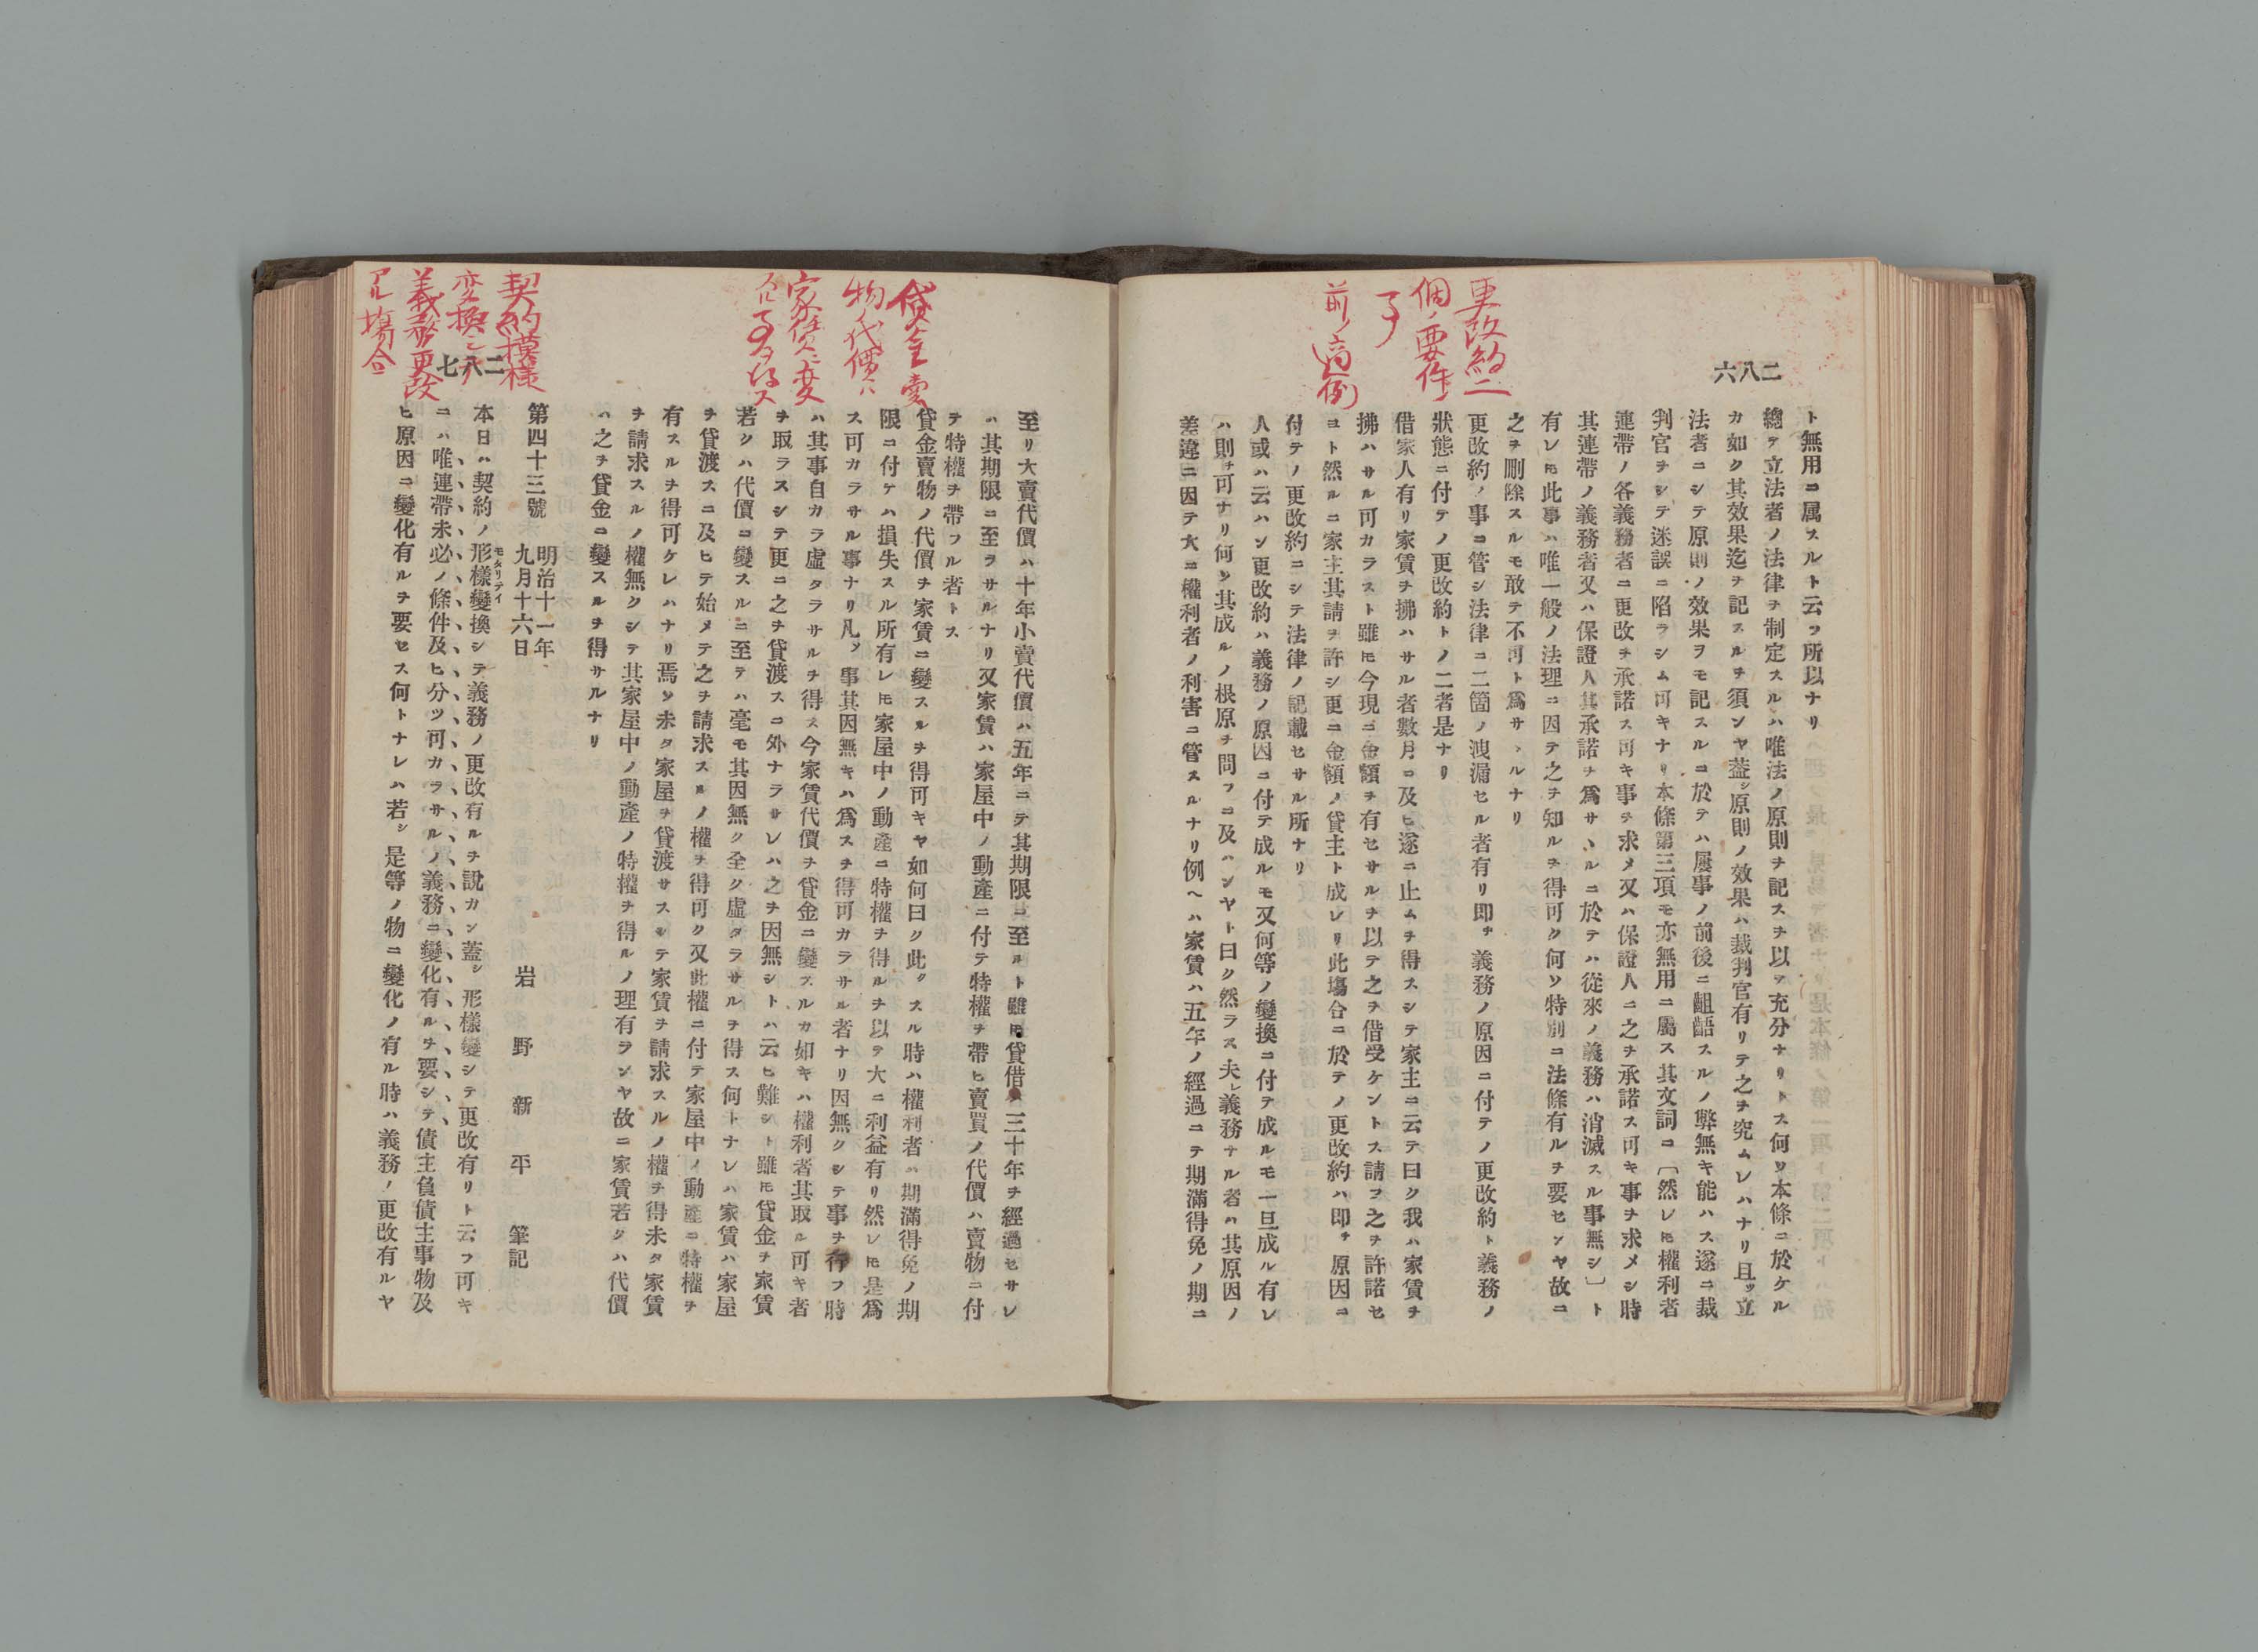 二八六
更改約二
個ノ要件
ヿ
前ノ適例
ト無用ニ属スルト云フ所以ナリ
總テ立法者ノ法律ヲ制定スルハ唯法ノ原則ヲ記スヲ以テ充分ナリトス何ソ本條ニ於ケル
カ如ク其效果迄ヲ記スルヲ須ンヤ葢シ原則ノ效果ハ裁判官有リテ之ヲ究ムレハナリ且ツ立
法者ニシテ原則ノ效果ヲモ記スルニ於テハ屢事ノ前後ニ齟齬スルノ弊無キ能ハス遂ニ裁
判官ヲシテ迷誤ニ陷ラシム可キナリ本條第三項モ亦無用ニ屬ス其文詞ニ〔然レ𪜈權利者
連帶ノ各義務者ニ更改ヲ承諾ス可キ事ヲ求メ又ハ保證人ニ之ヲ承諾ス可キ事ヲ求メシ時
其連帶ノ義務者又ハ保證人其承諾ヲ爲サヽルニ於テハ從來ノ義務ハ消滅スル事無シ〕ト
有レ𪜈此事ハ唯一般ノ法理ニ因テ之ヲ知ルヲ得可ク何ソ特別ニ法條有ルヲ要センヤ故ニ
之ヲ刪除スルモ敢テ不可ト爲サヽルナリ
更改約ノ事ニ管シ法律ニ二箇ノ洩漏セル者有リ即チ義務ノ原因ニ付テノ更改約ト義務ノ
狀態ニ付テノ更改約トノ二者是ナリ
借家人有リ家賃ヲ拂ハサル者數月ニ及ヒ遂ニ止ムヲ得スシテ家主ニ云テ曰ク我ハ家賃ヲ
拂ハサル可カラスト雖𪜈今現ニ金額ヲ有セサルヲ以テ之ヲ借受ケントス請フ之ヲ許諾セ
ヨト然ルニ家主其請ヲ許シ更ニ金額ノ貸主ト成レリ此塲合ニ於テノ更改約ハ即チ原因ニ
付テノ更改約ニシテ法律ノ記載セサル所ナリ
人或ハ云ハン更改約ハ義務ノ原因ニ付テ成ルモ又何等ノ變換ニ付テ成ルモ一旦成ル有レ
ハ則チ可ナリ何ソ其成ルノ根原ヲ問フニ及ハンヤト曰ク然ラス夫レ義務ナル者ハ其原因ノ
差違ニ因テ大ニ權利者ノ利害ニ管スルナリ例ヘハ家賃ハ五年ノ經過ニテ期滿得免ノ期ニ
二八七
貸金賣
物ノ代價ハ
家賃ニ変
スルヿヲ得ス
契約模様
変換シテ
義務更改
アル塲合
至リ大賣代價ハ十年小賣代價ハ五年ニテ其期限ニ至ルト雖𪜈貸借ハ三十年ヲ經過セサレ
ハ其期限ニ至ラサルナリ又家賃ハ家屋中ノ動產ニ付テ特權ヲ帶ヒ賣買ノ代價ハ賣物ニ付
テ特權ヲ帶フル者トス
貸金賣物ノ代價ヲ家賃ニ變スルヲ得可キヤ如何曰ク此クスル時ハ權利者ハ期滿得免ノ期
限ニ付テハ損失スル所有レ𪜈家屋中ノ動產ニ特權ヲ得ルヲ以テ大ニ利益有リ然レ𪜈是爲
ス可カラサル事ナリ凡ソ事其因無キハ爲スヲ得可カラサル者ナリ因無クシテ事ヲ行フ時
ハ其事自カラ虛タラサルヲ得ス今家賃代價ヲ貸金ニ變スルカ如キハ權利者其取ル可キ者
ヲ取ラスシテ更ニ之ヲ貸渡スニ外ナラサレハ之ヲ因無シトハ云ヒ難シト雖𪜈貸金ヲ家賃
若クハ代價ニ變スルニ至テハ毫モ其因無ク全ク虛タラサルヲ得ス何トナレハ家賃ハ家屋
ヲ貸渡スニ及ヒテ始メテ之ヲ請求スルノ權ヲ得可ク又此權ニ付テ家屋中ノ動產ニ特權ヲ
有スルヲ得可ケレハナリ焉ソ未タ家屋ヲ貸渡サスシテ家賃ヲ請求スルノ權ヲ得未タ家賃
ヲ請求スルノ權無クシテ其家屋中ノ動產ノ特權ヲ得ルノ理有ランヤ故ニ家賃若クハ代價
ハ之ヲ貸金ニ變スルヲ得サルナリ
第四十三號 明治十一年九月十六日 岩野新平 筆記
本日ハ契約ノ形樣モタリテイ變換シテ義務ノ更改有ルヲ說カン葢シ形樣變シテ更改有リト云フ可キ
ニハ唯連帶未必ノ條件及ヒ分ツ可カラサルノ義務ニ變化有ルヲ要シテ債主負債主事物及
ヒ原因ニ變化有ルヲ要セス何トナレハ若シ是等ノ物ニ變化ノ有ル時ハ義務ノ更改有ルヤ